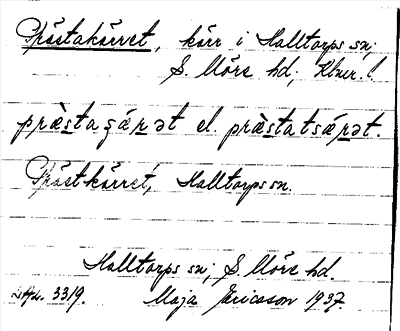 Prästakärret, kärr i Halltorps sn;
S. Möre hd; Klmr. l.
præ̀staçǽr̥ət el. præ̀statsǽr̥ət.
Prästkärret, Halltorps sn.
Halltorps sn; S. Möre hd.
3319. Maja Ericsson 1937.